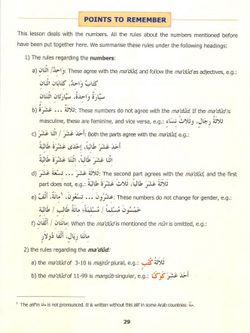 POINTS TO REMEMBER
This lesson deals with the numbers. All the rules about the numbers mentioned before
have been put together here. We summarise these rules under the following headings:
1) The rules regarding the numbers:
a) وَاحِدٌ/ اثْنَانِ: These agree with the ma'dûd, and follow the ma'dûd as adjectives, e.g.:
كِتَابٌ وَاحِدٌ، كِتَابَانِ اثْنَانِ
سَيَّارَةٌ وَاحِدَةٌ، سَيَّارَتَانِ اثْنَتَانِ
b) ثَلَاثَةٌ ... عَشَرَةٌ: These numbers do not agree with the ma'dûd. If the ma'dûd is
masculine, these are feminine, and vice versa, e.g.: ثَلَاثَةُ رِجَالٍ، وَثَلَاثُ نِسَاءٍ
c) أَحَدَ عَشَرَ / اثْنَا عَشَرَ: Both the parts agree with the ma'dûd, e.g.:
أَحَدَ عَشَرَ طَالِبًا، إِحْدَى عَشْرَةَ طَالِبَةً
اثْنَا عَشَرَ طَالِبًا، اثْنَتَا عَشْرَةَ طَالِبَةً
d) ثَلَاثَةَ عَشَرَ ... تِسْعَةَ عَشَرَ: The second part agrees with the ma'dûd, and the first
part does not, e.g.: ثَلَاثَةَ عَشَرَ طَالِبًا، ثَلَاثَ عَشْرَةَ طَالِبَةً
e) عِشْرُونَ ... تِسْعُونَ، مِائَةٌ، أَلْفٌ: These numbers do not change for gender, e.g.:
خَمْسُونَ مُسْلِمًا / مُسْلِمَةً؛ مِائَةُ طَالِبٍ / طَالِبَةٍ
f) مِائَتَانِ / أَلْفَانِ: When the ma'dûd is mentioned the nûn is omitted, e.g.:
مِائَتَا رِيَالٍ، أَلْفَا دُولَارٍ
2) the rules regarding the ma'dûd:
a) the ma'dûd of 3-10 is majrûr plural, e.g.: ثَلَاثَةُ كُتُبٍ
b) the ma'dûd of 11-99 is manṣûb singular, e.g.: أَحَدَ عَشَرَ كَوْكَبًا
¹ The alif in مائة is not pronounced. It is written without this alif in some Arab countries: مئة.
29